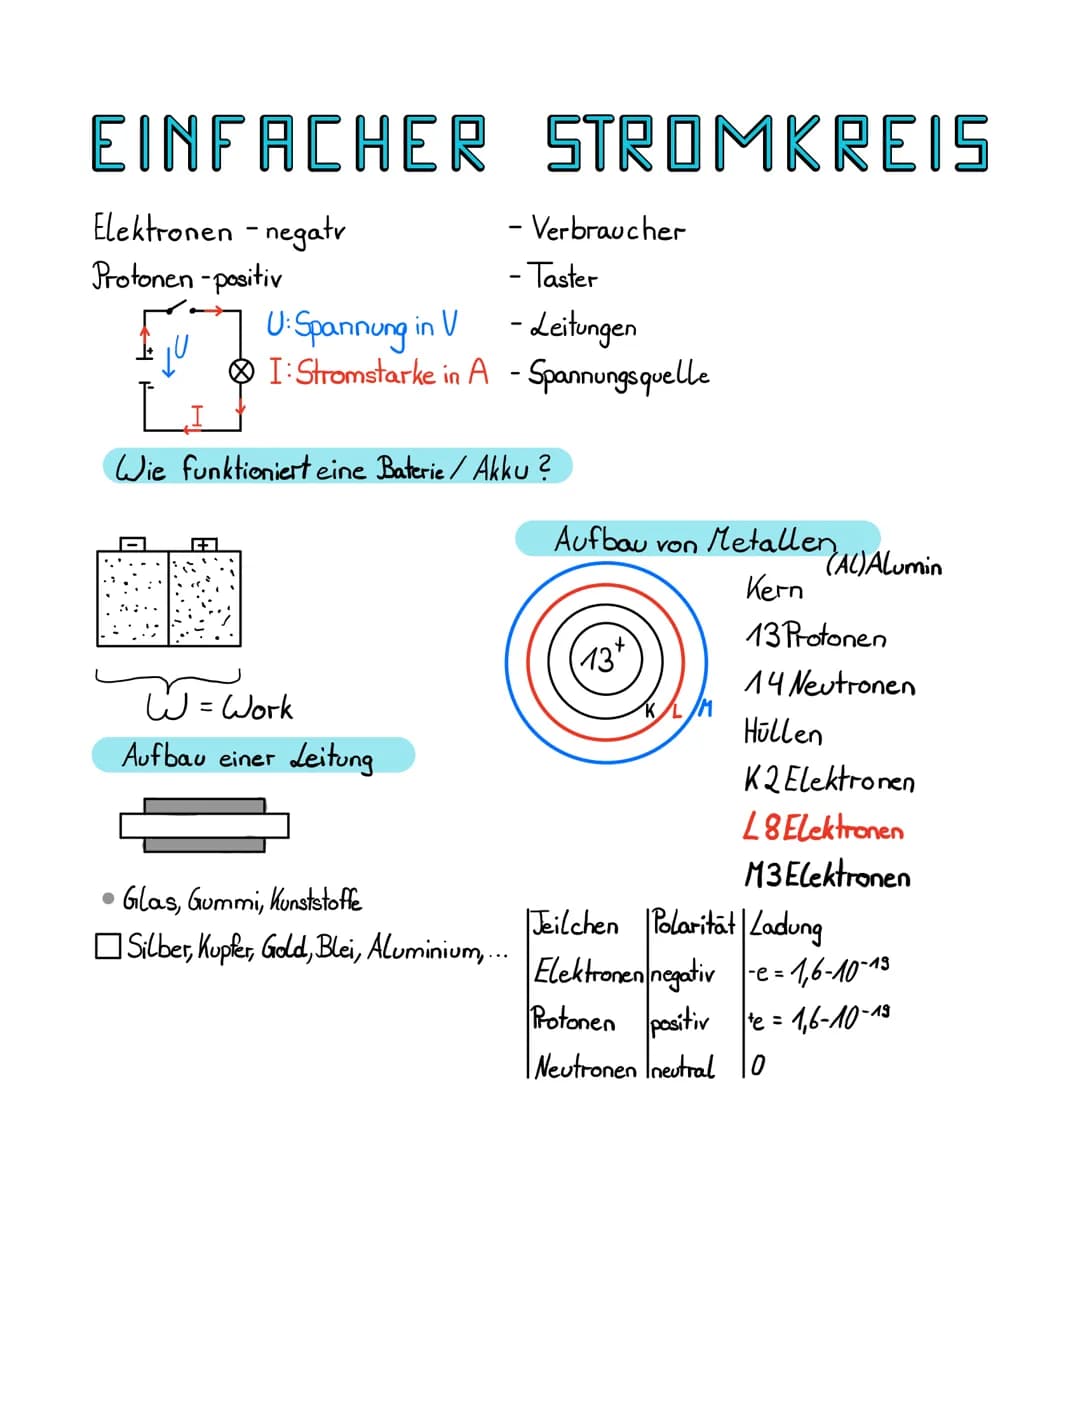 EINFACHER STROMKREIS
Elektronen - negatv
Protonen - positiv
- Verbraucher
- Taster
- Leitungen
- Spannungsquelle
+
U
-
I
U: Spannung in V
I: Stromstarke in A
Wie funktioniert eine Baterie / Akku?
- +
W = Work
Aufbau einer Leitung
Glas, Gummi, Kunststoffe
Silber, Kupfer, Gold, Blei, Aluminium, ...
Aufbau von Metallen
(Al) Alumin
13+
K L M
Kern
13 Protonen
14 Neutronen
Hüllen
K 2 Elektronen
L 8 Elektronen
M 3 Elektronen
Teilchen | Polarität | Ladung
Elektronen | negativ | -e = 1,6-10^-19
Protonen | positiv | +e = 1,6-10^-19
Neutronen | neutral | 0